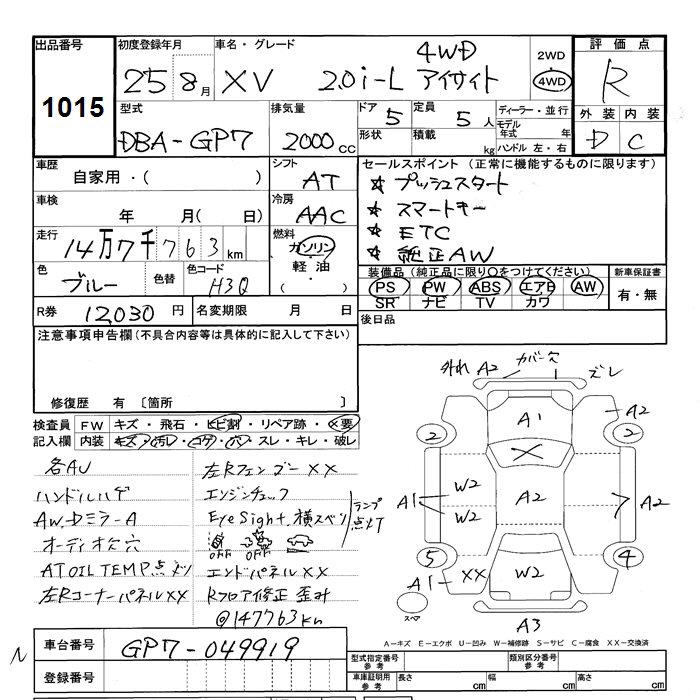 出品番号 初度登録年月 車名・グレード 2WD 評価点
1015 25 8月 XV 2.0i-L 4WD アイサイト 4WD R
型式 排気量 ドア 定員 ディーラー・並行 外装 内装
DBA-GP7 2000cc 5 5人 モデル年式 年 D C
形状 積載 kg ハンドル 左・右
車歴 シフト セールスポイント (正常に機能するものに限ります)
自家用・( ) AT ☆ プッシュスタート
車検 冷房 ☆ スマートキー
年 月( 日) AAC ☆ ETC
走行 燃料 ☆ 純正AW
14万7千763km ガソリン 装備品 (純正品に限り○をつけてください) 新車保証書
色 色替 色コード 軽油 PS PW ABS エアB AW 有・無
ブルー H3Q ( ) SR ナビ TV カワ
R券 12030円 名変期限 月 日 後日品
注意事項申告欄(不具合内容等は具体的に記入して下さい)
修復歴 有 〔箇所 〕
検査員 FW キズ・飛石・ヒビ割・リペア跡・×要
記入欄 内装 キズ・汚レ・コゲ・穴・スレ・キレ・破レ
各AU 左Rフェンダー××
ハンドルハゲ エンジンチェック
AW.Dミラ-A EyeSight.横スベリ ランプ点灯
オーディオ欠穴 OFF OFF
AT OIL TEMP点メツ エンドパネル××
左Rコーナーパネル×× Rフロア修正 歪み
@147763km
外れ A2 カバー穴 ズレ
A1 A2
2 2
×
A1 W2 W2 A2 A2
5 4
A1 ×× W2
スペア A3
A-キズ E-エクボ U-凹み W-補修跡 S-サビ C-腐食 XX-交換済
N 車台番号 GP7-049919 型式指定番号 参考 類別区分番号 参考
登録番号 車庫証明用 参考 長さ cm 幅 cm 高さ cm